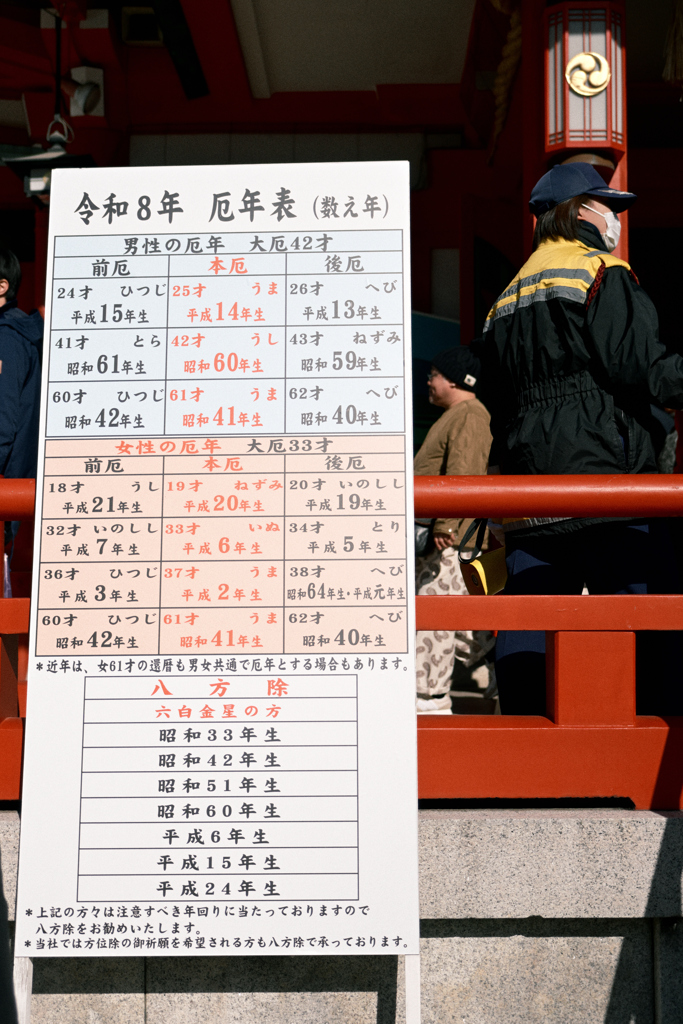 令和8年 厄年表 (数え年)
男性の厄年 大厄42才
前厄 本厄 後厄
24才 ひつじ 25才 うま 26才 へび
平成15年生 平成14年生 平成13年生
41才 とら 42才 うし 43才 ねずみ
昭和61年生 昭和60年生 昭和59年生
60才 ひつじ 61才 うま 62才 へび
昭和42年生 昭和41年生 昭和40年生
女性の厄年 大厄33才
前厄 本厄 後厄
18才 うし 19才 ねずみ 20才 いのしし
平成21年生 平成20年生 平成19年生
32才 いのしし 33才 いぬ 34才 とり
平成7年生 平成6年生 平成5年生
36才 ひつじ 37才 うま 38才 へび
平成3年生 平成2年生 昭和64年生・平成元年生
60才 ひつじ 61才 うま 62才 へび
昭和42年生 昭和41年生 昭和40年生
*近年は、女61才の還暦も男女共通で厄年とする場合もあります。
八方除
六白金星の方
昭和33年生
昭和42年生
昭和51年生
昭和60年生
平成6年生
平成15年生
平成24年生
*上記の方々は注意すべき年回りに当たっておりますので
八方除をお勧めいたします。
*当社では方位除の御祈願を希望される方も八方除で承っております。